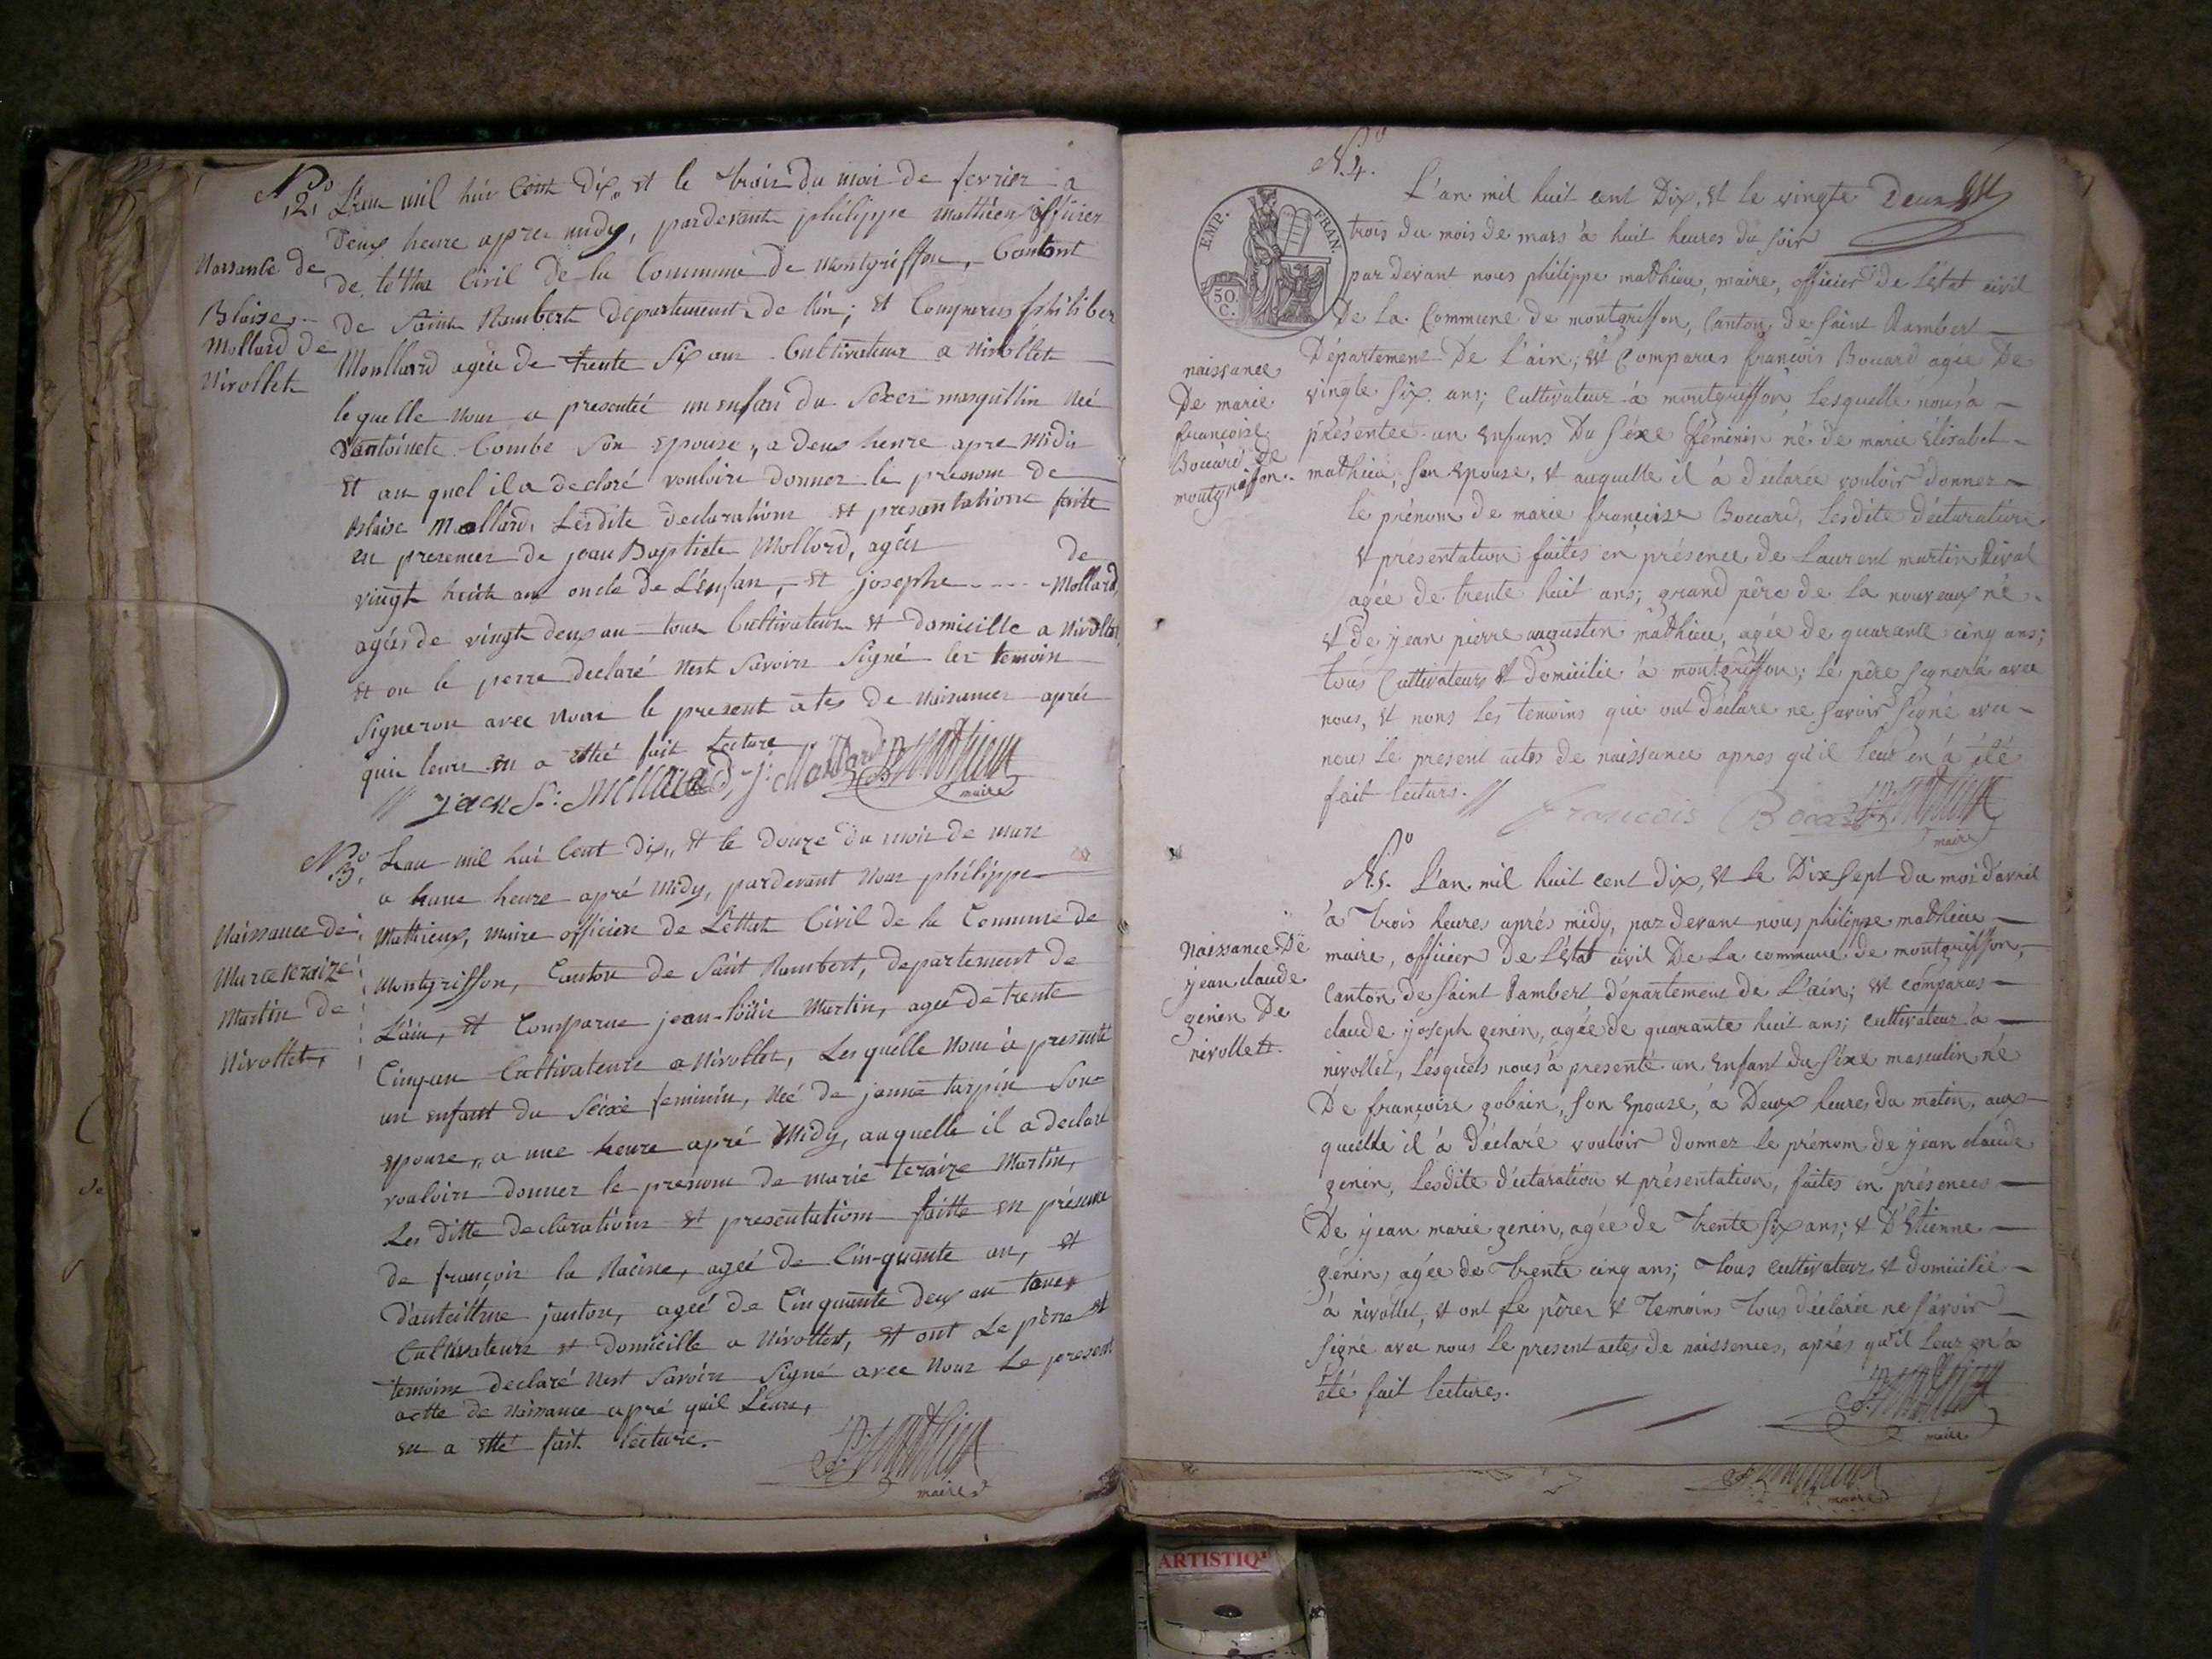 N.o 2. L'an mil hui Cent Dix, et le trois Du mois de fevrier a
Deux heure apres midy, pardevant philippe mathieu officier
de L'ettat Civil De la Commune De montgriffon, Cantont
de Saint Rambert Departement de l'ain; et Comparus philiber
Mollard agée de trente Six ans Cultivateur a nivollet
le quelle nous a presenteé un enfan du Sexe masquillin Neé
D'antoinete Combe Son epouse, a Deux heure apre midi
et au quel il a declaré vouloire donner le prenom de
Blaise Mollard, Lesdite declarations et presantations faite
en presences de jean Baptiste Mollard, agées de
vingt huit ans oncle de L'enfan, et josephe - - - - Mollard,
agées de vingt deux an tous Cultivateurs et domicille a nivollet
et on le perre declaré nest Savoire Signé les temoin
Signeron avec nous le present actes de naisances aprés
quie leurs en a etté fait Lecture
Naisanse de
Blaises
Mollard de
Nivollet
J. Mollard P. Mathieu
maire
N.o 3. Lan mil hui Cent dix, et le Douze du mois de mars
a hune heure apré midy, pardevant Nous philippe
Mathieux, maire officiere de L'ettat Civil de la Commune de
montgriffon, Canton de Saint Rambert, departement de
L'ain, et Comparue jean-louis Martin, ageé de trente
Cinq an Cultivateurs a nivollet, Lesquelle Nous à presenté
un enfant du Séixe feminin, Neé de janne turpin Son
epouse, a une heure apré Midy, auquelle il a declaré
vouloire donner le prenom de marie teraize Martin,
Les ditte declarations et presentations faitte en présence
de françois la Racine, ageé de Cin-quante an, et
D'anteithme janton, ageé de Cinquante deux an tous
Cultivateurs et domicille a Nivollet, et ont Le pérre et
temoins declaré nest Savoire Signé avec Nous Le present
actte de Naissance apré quil Leurs,
en a etté fait lecture.
Naissance de
Marie teraize
Martin de
Nivollet,
P. Mathieu
maire
N.o 4.
L'an mil huit cent Dix, et le vingte Deux
trois du mois de mars à huit heures du soir
par devant nous philippe mathieu, maire, officier de L'état civil
De La Commune de montgriffon, Canton de Saint Rambert
Département De L'ain; et Comparus françois Bouard agée De
vingte Six ans; Cultivateur à montgriffon, Lesquelle nous à
présentée un enfans Du Séxe féminin né de marie elisabet
mathieu, Son epouse, et auquelle il à declarée vouloir donner
le prénom de marie françoise Bouard, Lesdite déclaration
et presentation faites en présence de Laurent martin Rival
agée de trente huit ans; grand père de La nouveau né
et de jean pierre augustin mathieu, agée de quarante cinq ans;
tous Cultivateurs et Domicilié à montgriffon; Le père Signera avec
nous, et nons Les temoins qui ont déclaré ne Savoir Signé avec
nous Le present actes de naissance apres qu'il leur en à été
fait lecturs.
EMP. FRAN.
50 C.
naissance
De marie
françoise
Bouard De
montgriffon.
François Bouard P. Mathieu
maire
N.o 5. L'an mil huit cent dix, et Le Dix Sept du mois d'avril
à trois heures aprés midy, par devant nous philippe mathieu
maire, officier De L'état civil De La commune de montgriffon,
Canton de Saint Rambert département de L'ain; et comparus
claude joseph genin, agée de quarante huit ans; cultivateur à
nivollet, Lesquels nous à presenté un enfant du Séxe masculin né
De françoise gobain, Son epouse, à Deux heures du matin, aux
quelle il à Déclaré vouloir donner Le prénom de jean claude
genin, Lesdite déclaration et présentation, faites en présences
De jean marie genin, agée de trente Six ans; et D'étienne
génin, agée de trente cinq ans; tous cultivateur et domicilié
à nivollet, et ont Le pére et temoins tous déclarée ne Savoir
Signé avec nous Le present actes de naissences, aprés qu'il Leur en à
été fait lectures.
Naissance De
jean claude
genin De
nivollett.
P. Mathieu
maire
maire
ARTISTIQ